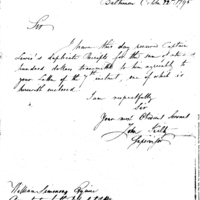 Baltimore Octo. 22d 1798
Sir
I have this day received Captain
Lewis's duplicate Receipts for the sum of
hundred dollars transmitted to him agreeably to
your Letter of the 7th instant, one of which is
herewith enclosed.
I am respectfully
Sir
Your most Obedient Servant
John
William Simmons Esquire